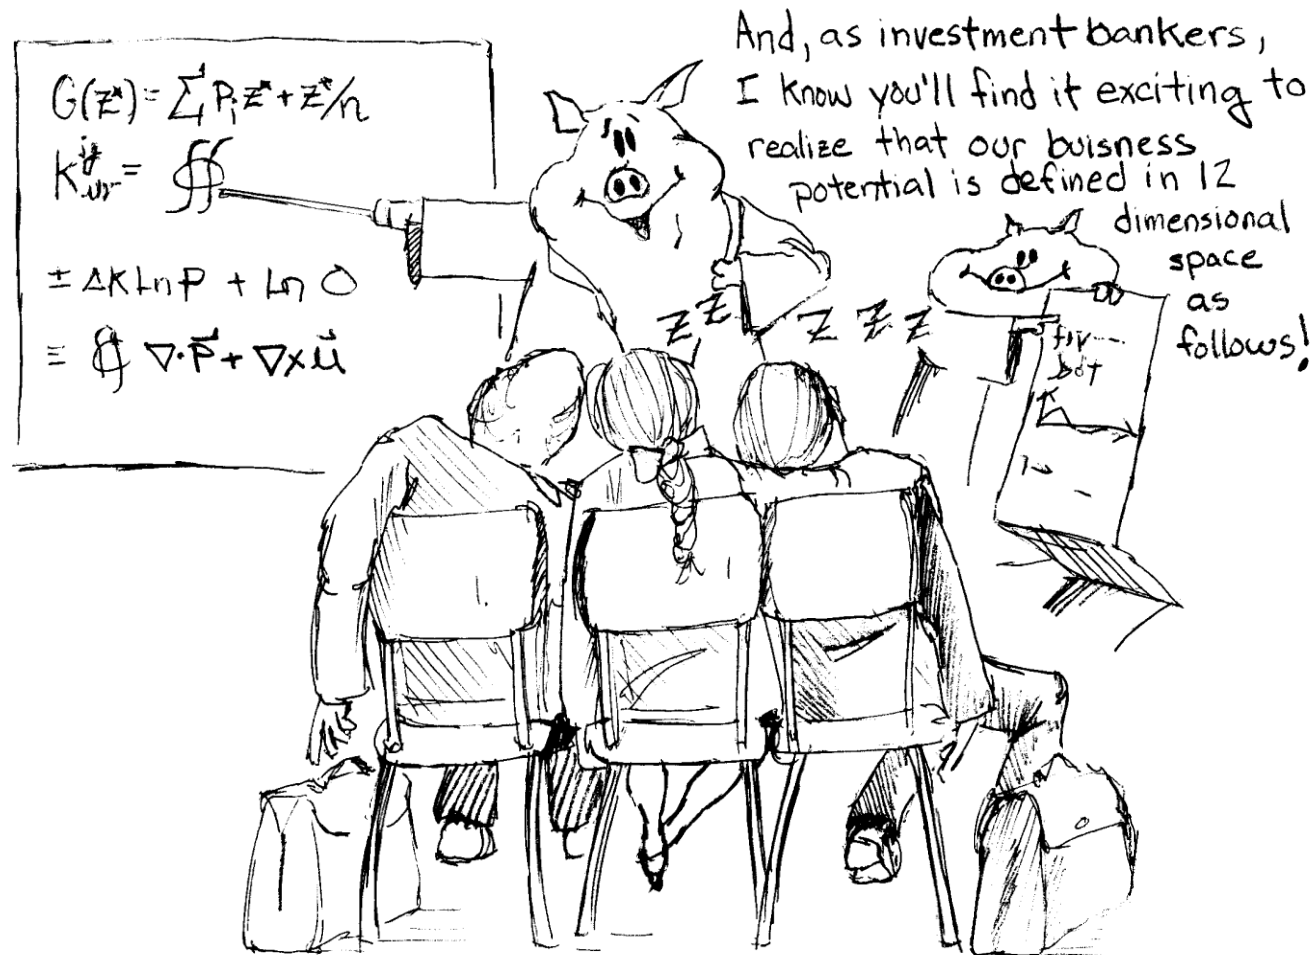 G(z*) = Σ Pᵢ z* + z*/n
K =
± ΔK Ln P + Ln O
≡ ∮ ∇·P⃗ + ∇×u⃗
And, as investment bankers,
I know you'll find it exciting to
realize that our buisness
potential is defined in 12
dimensional
space
as
follows!
Z Z Z Z Z